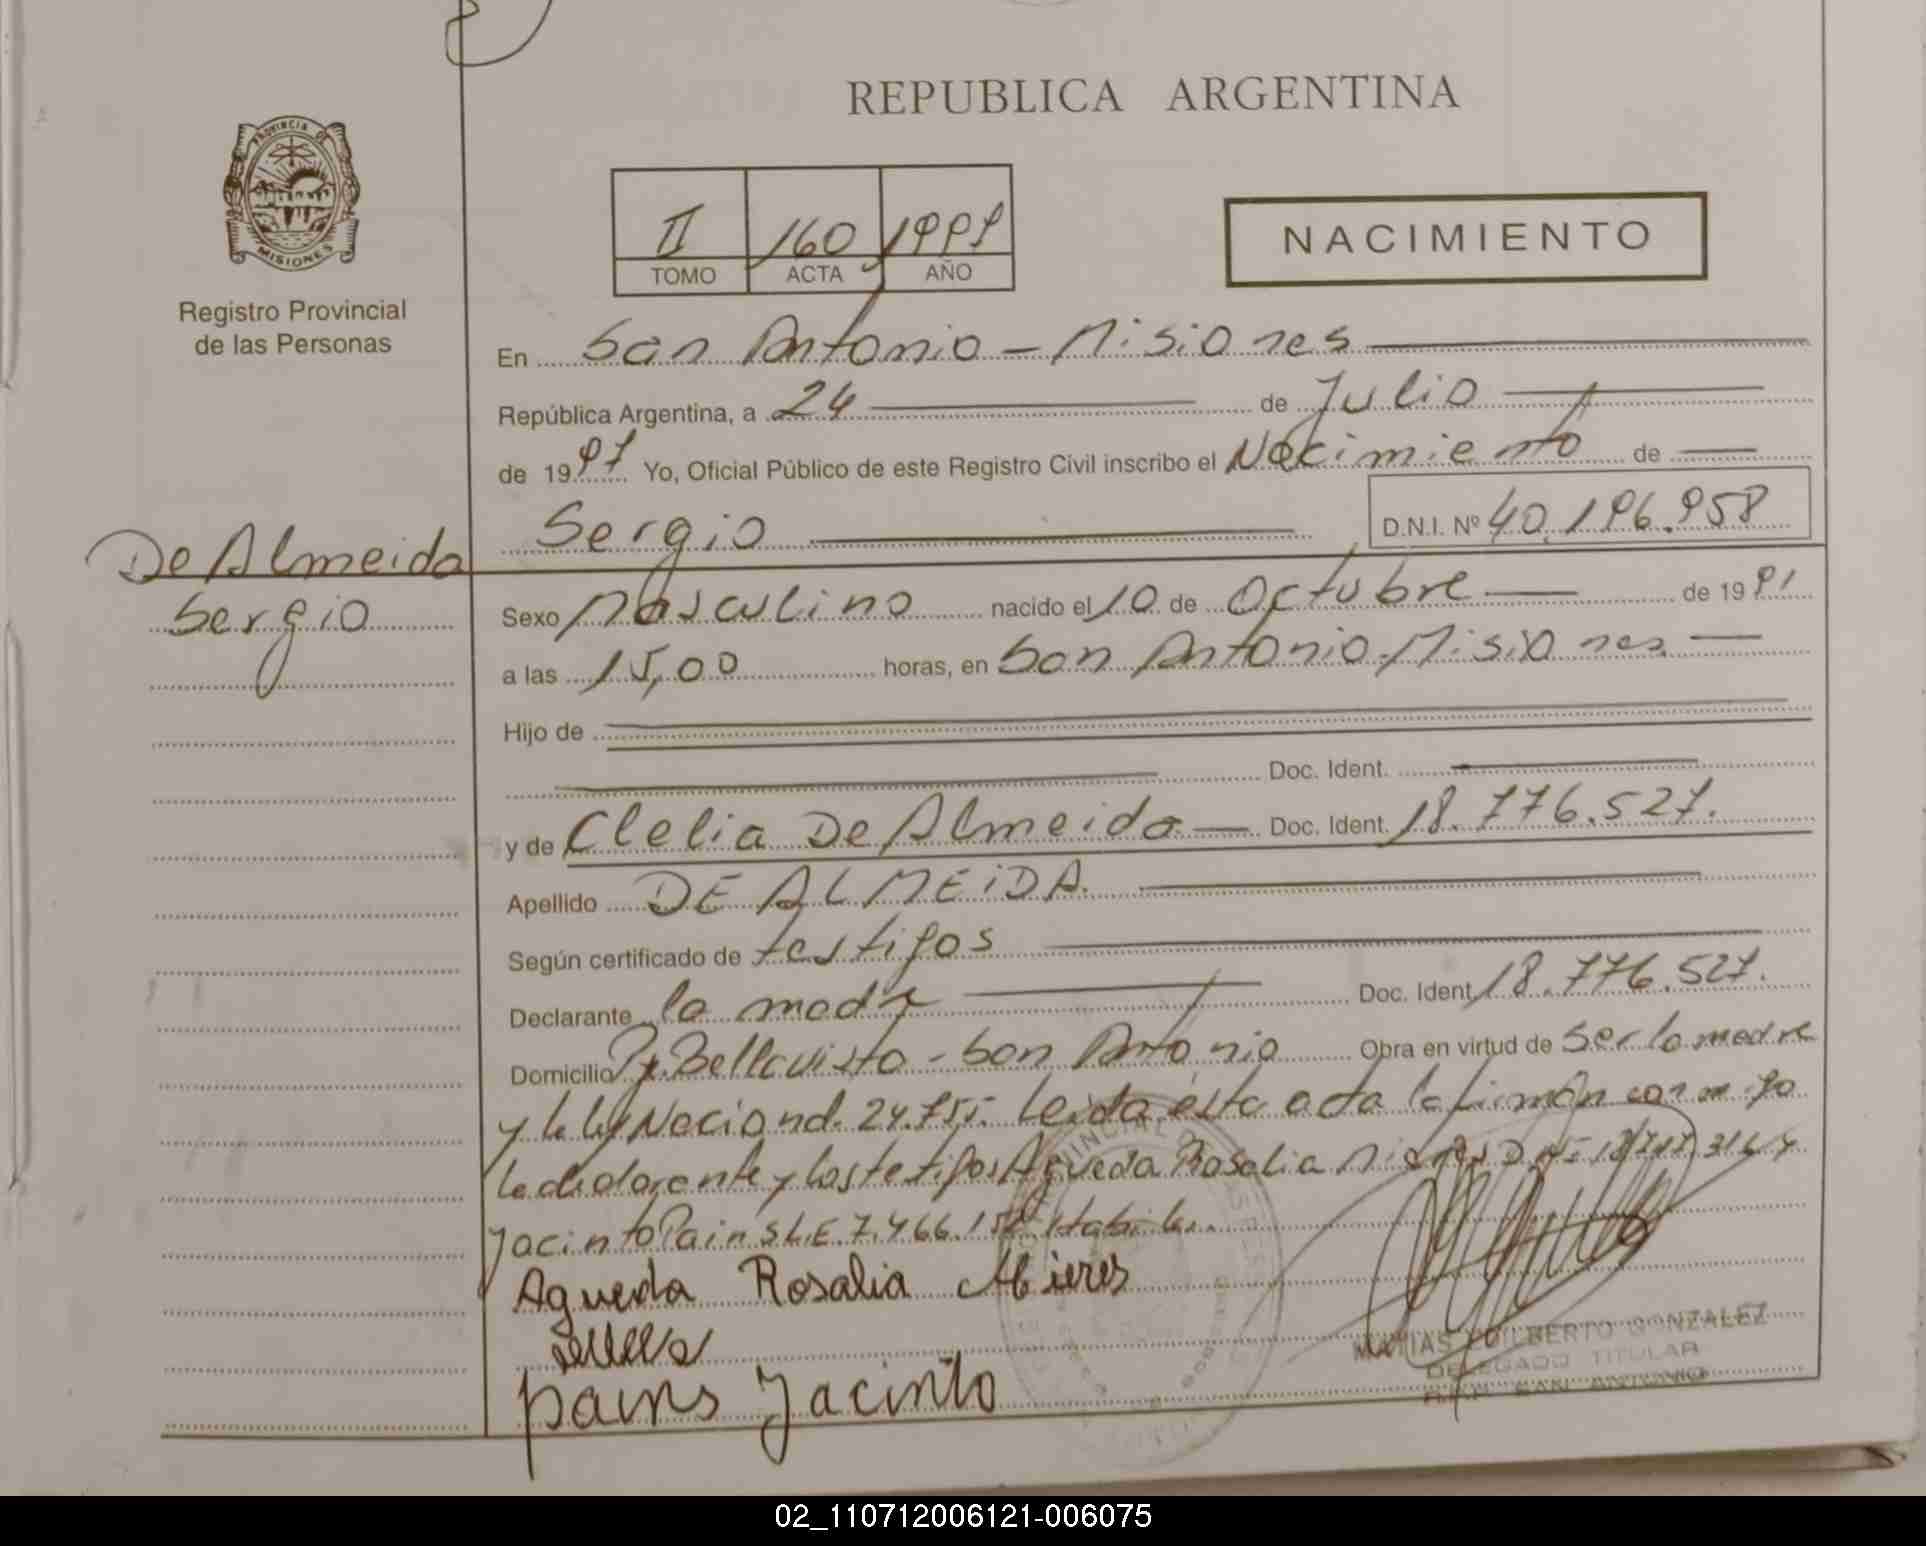 REPUBLICA ARGENTINA
PROVINCIA DE
MISIONES
Registro Provincial
de las Personas
II 160 1991
TOMO ACTA AÑO
NACIMIENTO
En San Antonio - Misiones
República Argentina, a 24 de Julio
de 1997 Yo, Oficial Público de este Registro Civil inscribo el Nacimiento de
Sergio D.N.I. Nº 40.196.958
De Almeida
Sergio
Sexo Masculino nacido el 10 de Octubre de 1991
a las 15,00 horas, en San Antonio - Misiones
Hijo de
Doc. Ident.
y de Clelia De Almeida Doc. Ident. 18.776.527.
Apellido DE ALMEIDA.
Según certificado de testigos
Declarante la madre Doc. Ident. 18.776.527.
Domicilio Bellavista - San Antonio Obra en virtud de Ser la madre
y la ley Nacional 24.755. Leida esta acta la firman conmigo
la declarante y los testigos Agueda Rosalia Mieres y
Jacinto Pains L.E. 7.466. Habil.
Agueda Rosalia Mieres
pains Jacinto
MATIAS EDILBERTO GONZALEZ
DELEGADO TITULAR
R.P.P. SAN ANTONIO
02_110712006121-006075